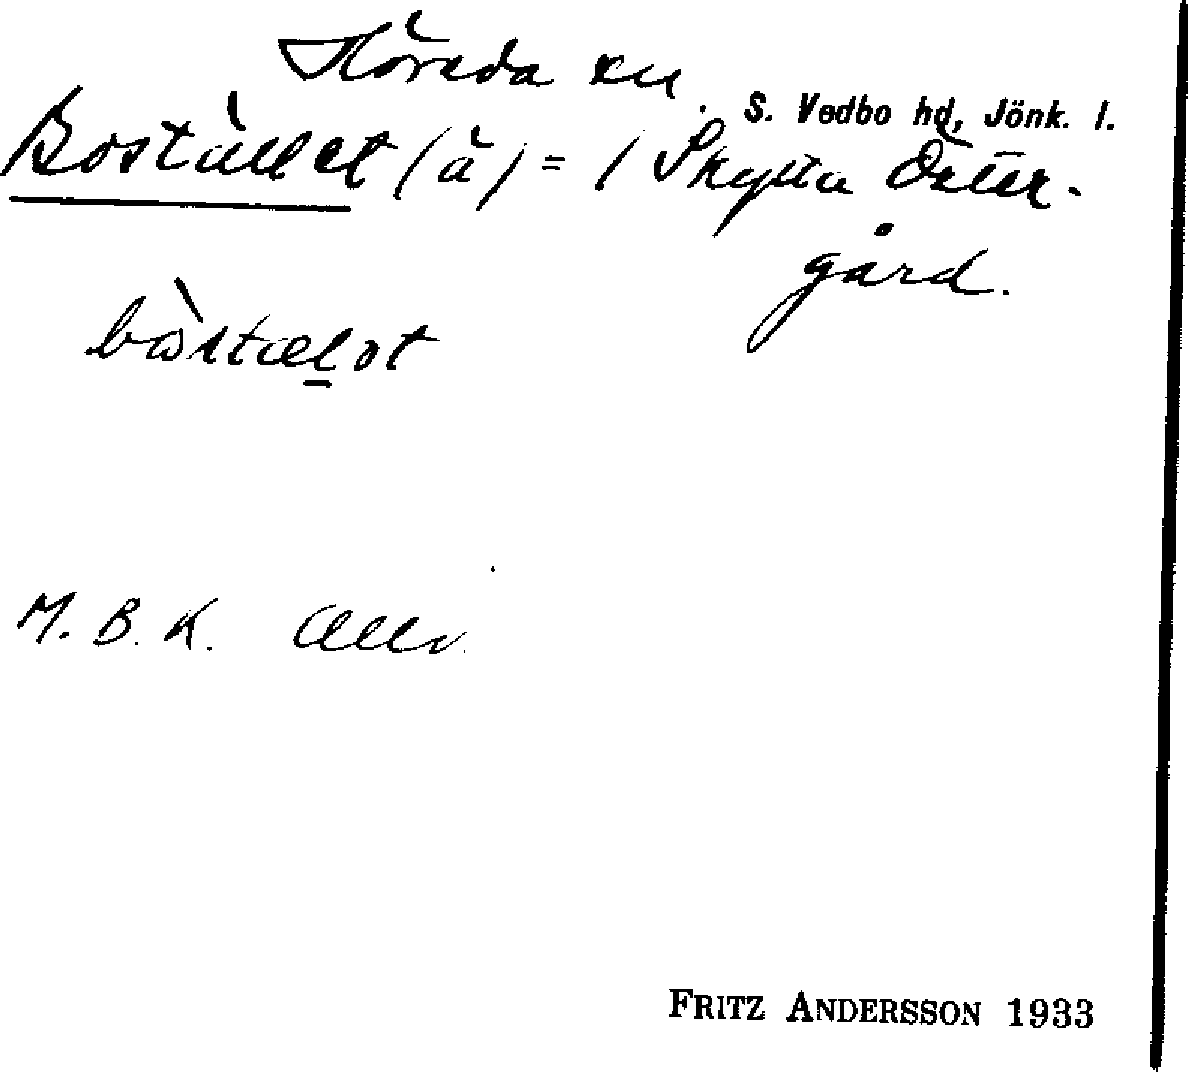 Höreda sn.
S. Vedbo hd, Jönk. l.
Bostället (ä) = / Skytta Öster-
gård.
bòstælət
M. B. K.
FRITZ ANDERSSON 1933